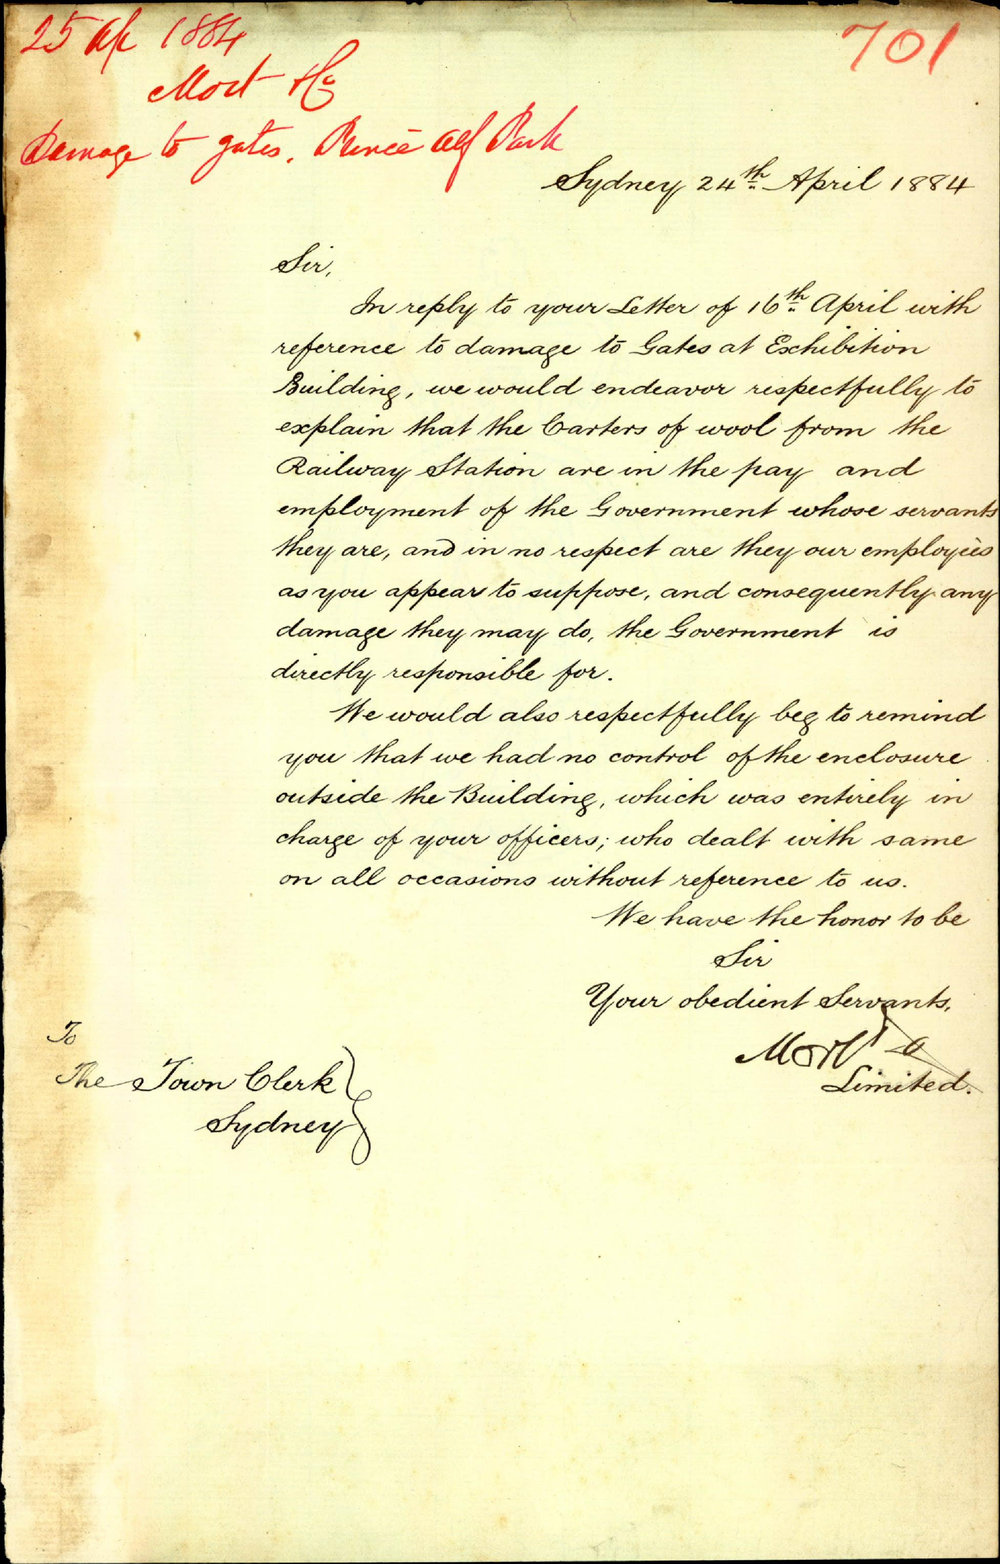 25 Ap 1884
701
Mort & Co
Damage to gates. Prince Alf Park
Sydney 24th April 1884
Sir,
In reply to your Letter of 16th April with
reference to damage to Gates at Exhibition
Building, we would endeavor respectfully to
explain that the Carters of wool from the
Railway Station are in the pay and
employment of the Government whose servants
they are, and in no respect are they our employées
as you appear to suppose, and consequently any
damage they may do, the Government is
directly responsible for.
We would also respectfully beg to remind
you that we had no control of the enclosure
outside the Building, which was entirely in
charge of your officers; who dealt with same
on all occasions without reference to us.
We have the honor to be
Sir
Your obedient Servants.
Mort & Co
Limited.
To
The Town Clerk
Sydney